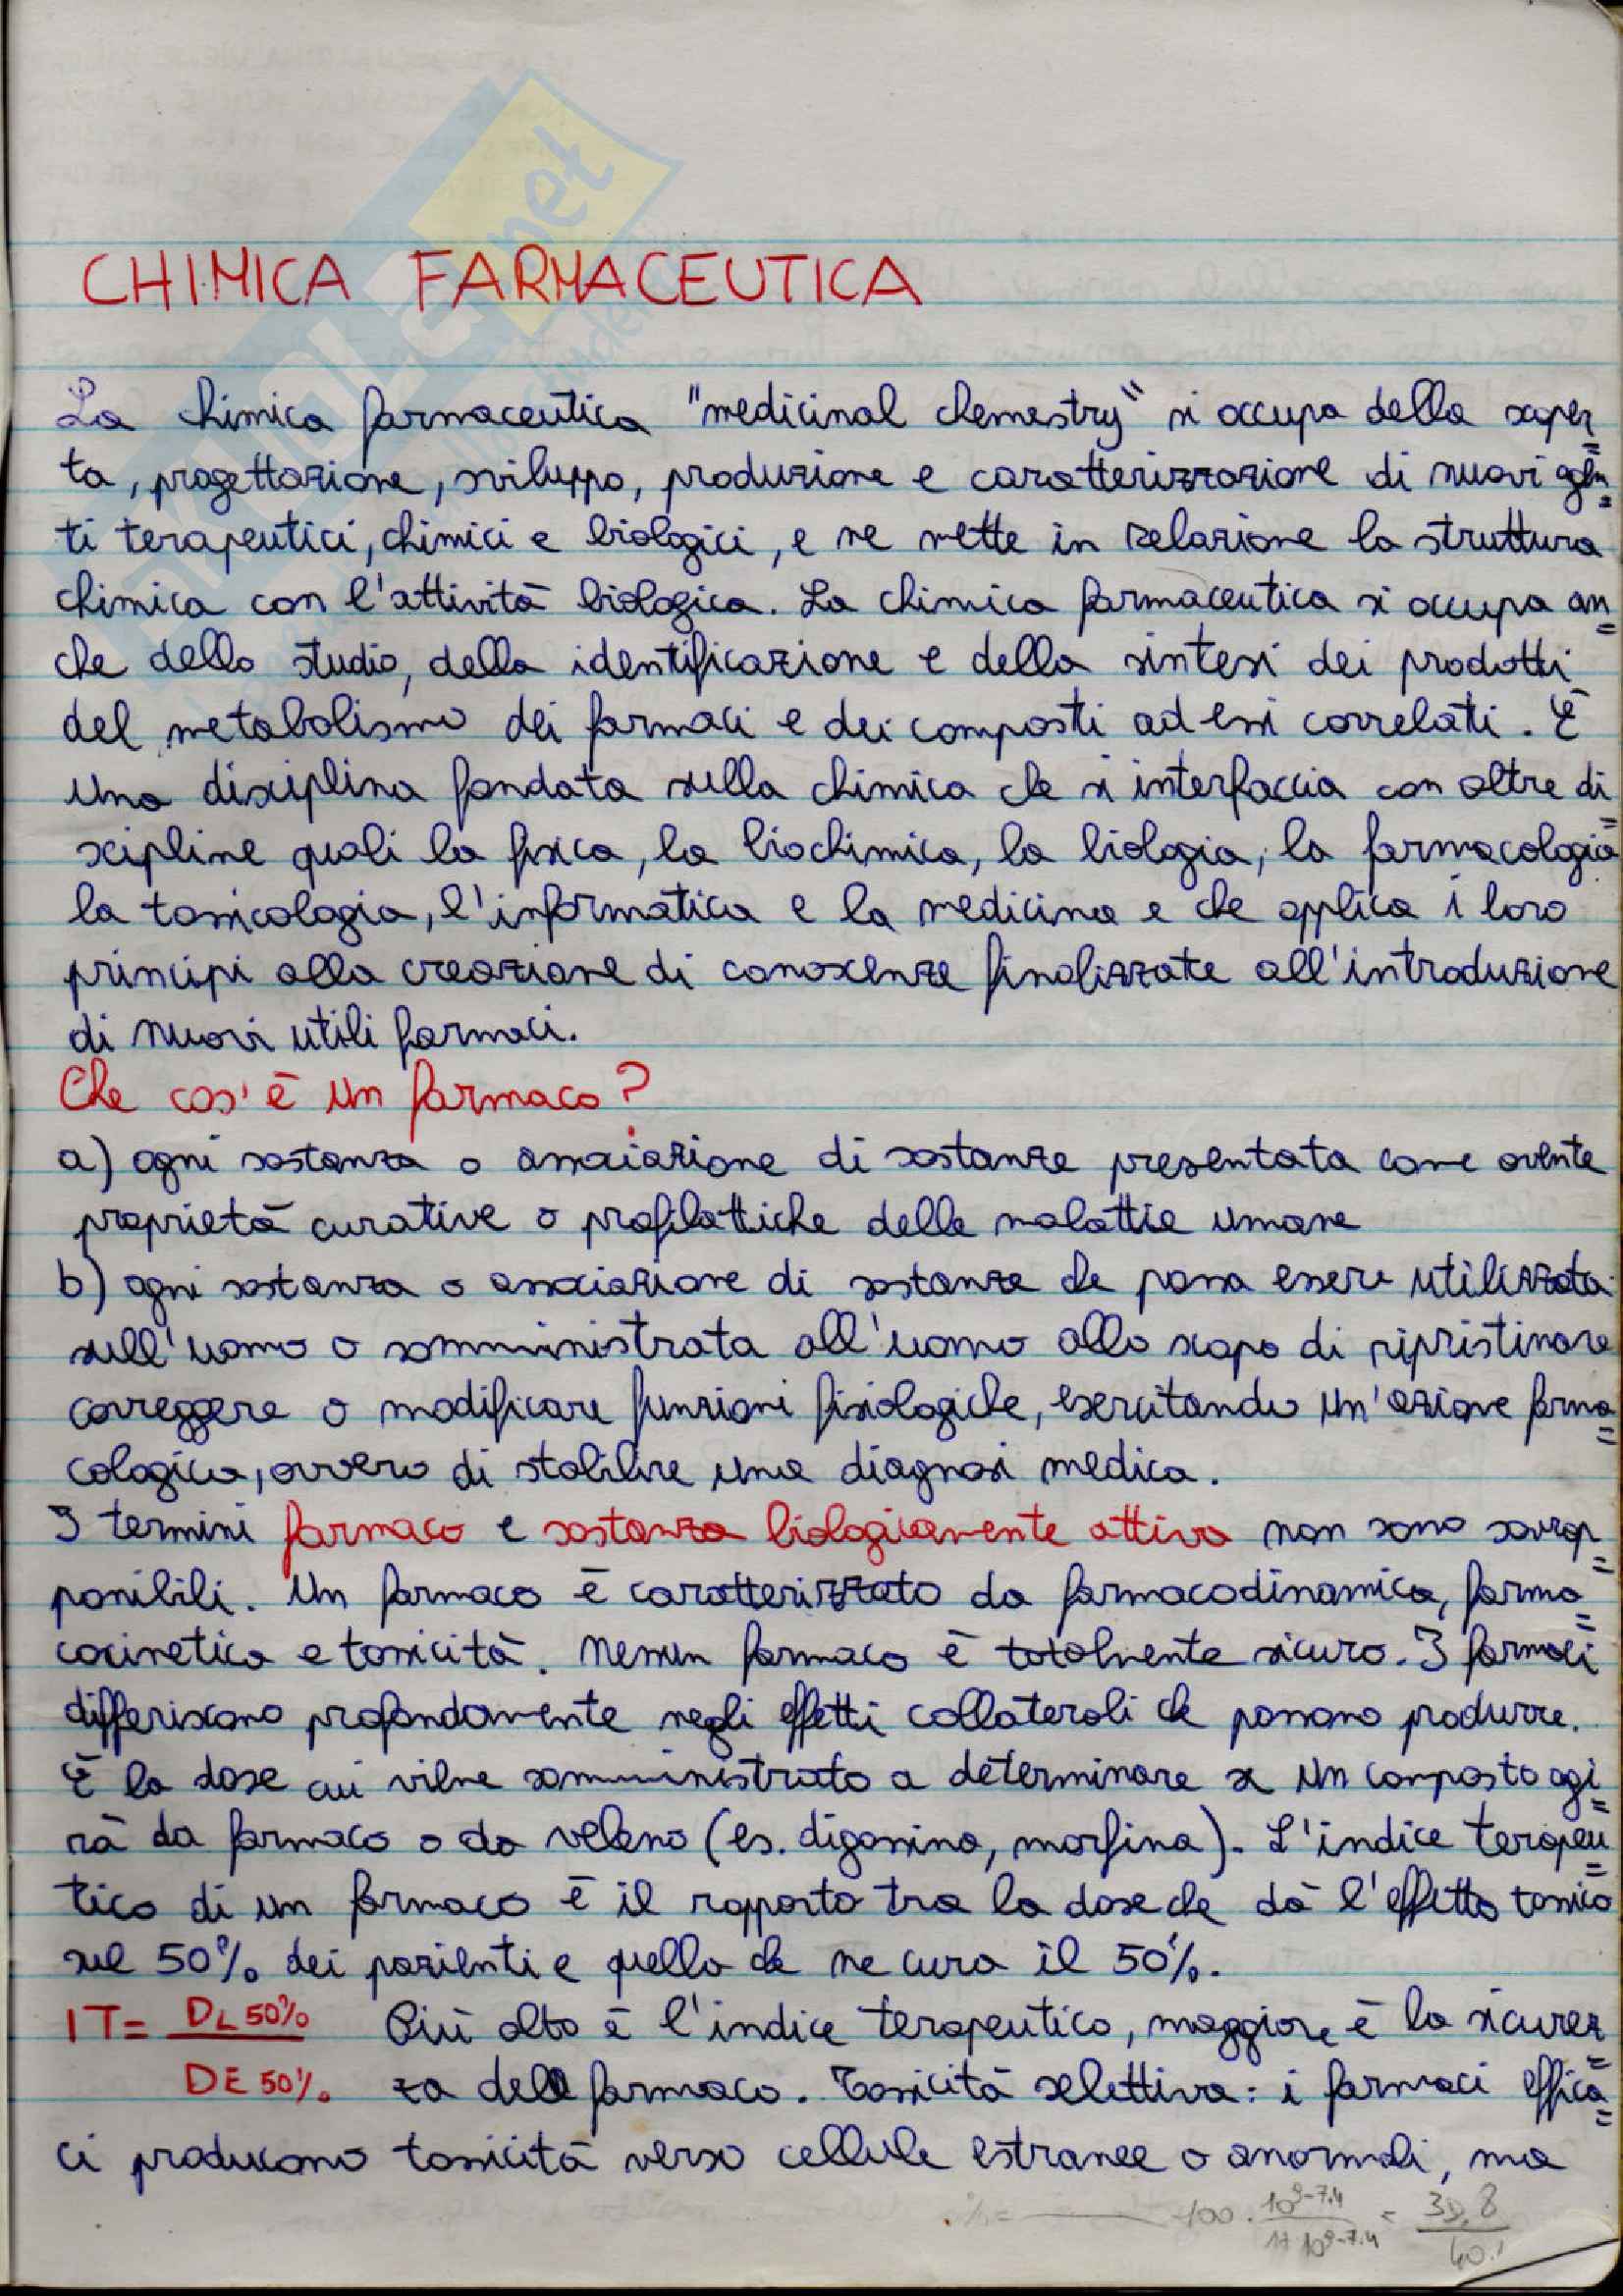 CHIMICA FARMACEUTICA
La chimica farmaceutica "medicinal chemestry" si occupa della scoper=
ta, progettazione, sviluppo, produzione e caratterizzazione di nuovi agen=
ti terapeutici, chimici e biologici, e ne mette in relazione la struttura
chimica con l'attività biologica. La chimica farmaceutica si occupa an=
che dello studio, della identificazione e della sintesi dei prodotti
del metabolismo dei farmaci e dei composti ad essi correlati. È
una disciplina fondata sulla chimica che si interfaccia con altre di=
scipline quali la fisica, la biochimica, la biologia, la farmacologia
la tossicologia, l'informatica e la medicina e che applica i loro
principi alla creazione di conoscenze finalizzate all'introduzione
di nuovi utili farmaci.
Che cos'è un farmaco?
a) ogni sostanza o associazione di sostanze presentata come avente
proprietà curative o profilattiche delle malattie umane
b) ogni sostanza o associazione di sostanze che possa essere utilizzata
sull'uomo o somministrata all'uomo allo scopo di ripristinare
correggere o modificare funzioni fisiologiche, esercitando un'azione farma=
cologica, ovvero di stabilire una diagnosi medica.
I termini farmaco e sostanza biologicamente attiva non sono sovrap=
ponibili. Un farmaco è caratterizzato da farmacodinamica, farma=
cocinetica e tossicità. Nessun farmaco è totalmente sicuro. I farmaci
differiscono profondamente negli effetti collaterali che possono produrre.
È la dose cui viene somministrato a determinare se un composto agi=
rà da farmaco o da veleno (es. digossina, morfina). L'indice terapeu=
tico di un farmaco è il rapporto tra la dose che dà l'effetto tossico
sul 50% dei pazienti e quella che ne cura il 50%.
IT= DL 50% Più alto è l'indice terapeutico, maggiore è la sicurez=
DE 50% za del farmaco. Tossicità selettiva: i farmaci effica=
ci producono tossicità verso cellule estranee o anormali, ma
%= 100 · 10^9-7.4 = 39,8
1+10^9-7.4